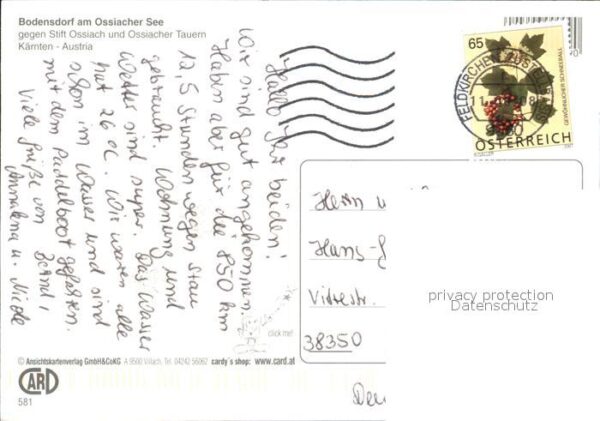 Bodensdorf am Ossiacher See
gegen Stift Ossiach und Ossiacher Tauern
Kärnten - Austria
Hallo Ihr beiden!
Wir sind gut angekommen.
Haben aber für die 850 km
12,5 Stunden wegen Stau
gebraucht. Wohnung und
Wetter sind super. Das Wasser
hat 26°C. Wir waren alle
schon im Wasser und sind
mit dem Paddelboot gefahren.
Viele Grüße von
Annalena u. Nicole
65
FELDKIRCHEN
GEWÖHNLICHER SCHNEEBALL
ÖSTERREICH
Herrn u
Hans-J
38350
privacy protection
Datenschutz
click me!
© Ansichtskartenverlag GmbH&CoKG A 9500 Villach, Tel. 04242 56062 cardy's shop: www.card.at
CARD
581